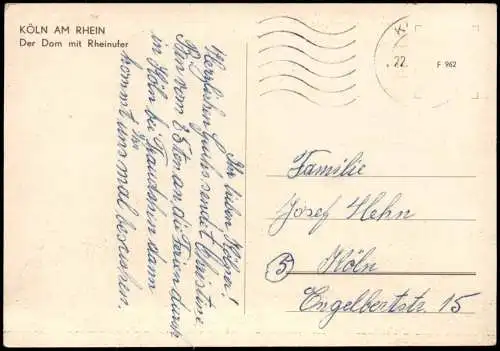 KÖLN AM RHEIN
Der Dom mit Rheinufer
K
.22.
F 962
Ihr lieben Kölner!
Herzlichen Gruß sendet Christine
Bin vom 25ten an die Ferien durch
in Köln bei Traudchen dann
kommt Ihr
uns mal besuchen.
Familie
Josef Hehn
5 Köln
Engelbertstr. 15